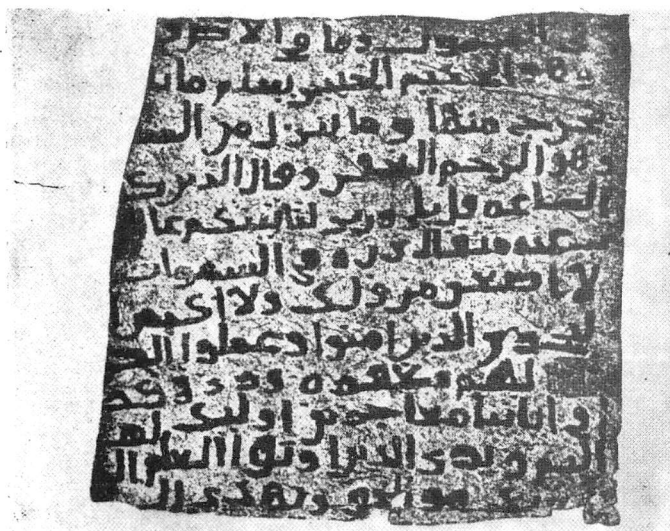 السموت وما و الارض
وهو الحكيم الخبير يعلم ما يلج
يخرج منها وما ينزل من السما
وهو الرحيم الغفور وقال الذين ك
الساعه قل بلى وربى لتاتينكم عا
عنه مثقال ذره فى السموات
لا اصغر من ذلك ولا اكبر ا
ليجزى الذين امنوا وعملوا الص
لهم مغفره ورزق كر
و اياتنا معاجزين اولئك لهم
اليم ويرى الذين اوتوا العلم ال
هو الحق ويهدى ال